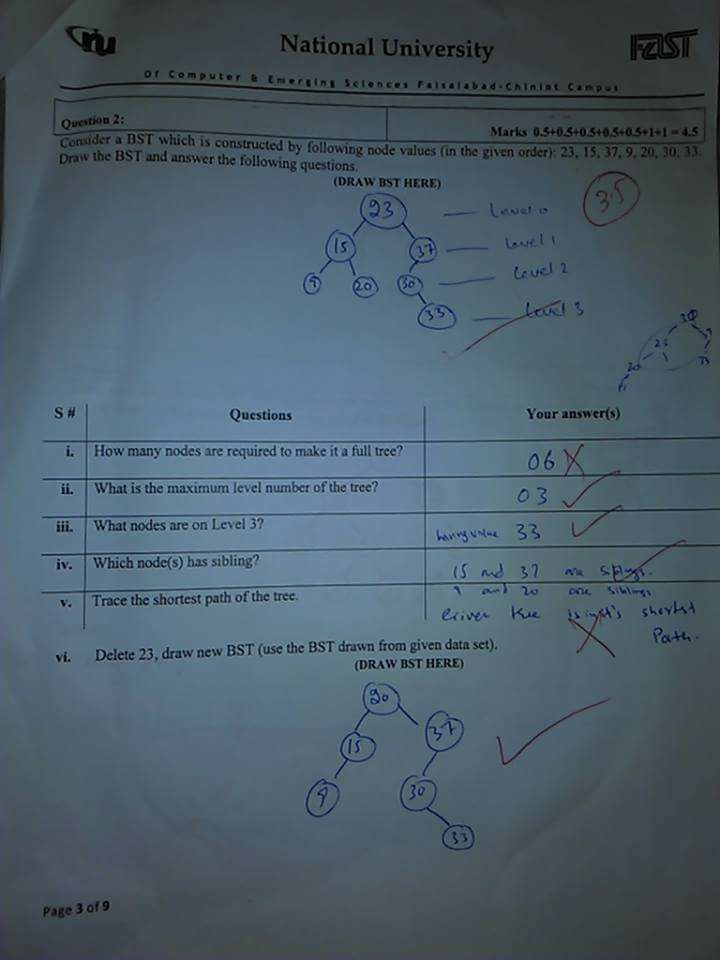 National University
FAST
Of Computer & Emerging Sciences Faisalabad-Chiniot Campus
Question 2:
Marks 0.5+0.5+0.5+0.5+0.5+1+1 = 4.5
Consider a BST which is constructed by following node values (in the given order): 23, 15, 37, 9, 20, 30, 33.
Draw the BST and answer the following questions.
(DRAW BST HERE)
3.5
23 Level 0
15 37 Level 1
9 20 30 Level 2
33 Level 3
S # Questions Your answer(s)
i. How many nodes are required to make it a full tree? 06
ii. What is the maximum level number of the tree? 03
iii. What nodes are on Level 3? having value 33
iv. Which node(s) has sibling? 15 and 37 are siblings.
9 and 20 are siblings
v. Trace the shortest path of the tree. is shortst
Path.
vi. Delete 23, draw new BST (use the BST drawn from given data set).
(DRAW BST HERE)
20
15 37
9 30
33
Page 3 of 9